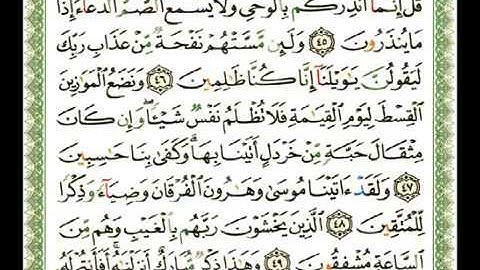 قُلْ إِنَّمَآ أُنذِرُكُم بِالْوَحْيِ وَلَا يَسْمَعُ الصُّمُّ الدُّعَآءَ إِذَا
مَا يُنذَرُونَ ٤٥ وَلَئِن مَّسَّتْهُمْ نَفْحَةٌ مِّنْ عَذَابِ رَبِّكَ
لَيَقُولُنَّ يَٰوَيْلَنَآ إِنَّا كُنَّا ظَٰلِمِينَ ٤٦ وَنَضَعُ الْمَوَٰزِينَ
الْقِسْطَ لِيَوْمِ الْقِيَٰمَةِ فَلَا تُظْلَمُ نَفْسٌ شَيْـًٔا ۖ وَإِن كَانَ
مِثْقَالَ حَبَّةٍ مِّنْ خَرْدَلٍ أَتَيْنَا بِهَا ۗ وَكَفَىٰ بِنَا حَٰسِبِينَ
٤٧ وَلَقَدْ ءَاتَيْنَا مُوسَىٰ وَهَٰرُونَ الْفُرْقَانَ وَضِيَآءً وَذِكْرًا
لِّلْمُتَّقِينَ ٤٨ الَّذِينَ يَخْشَوْنَ رَبَّهُم بِالْغَيْبِ وَهُم مِّنَ
السَّاعَةِ مُشْفِقُونَ ٤٩ وَهَٰذَا ذِكْرٌ مُّبَارَكٌ أَنزَلْنَٰهُ ۚ أَفَأَنتُمْ لَهُۥ